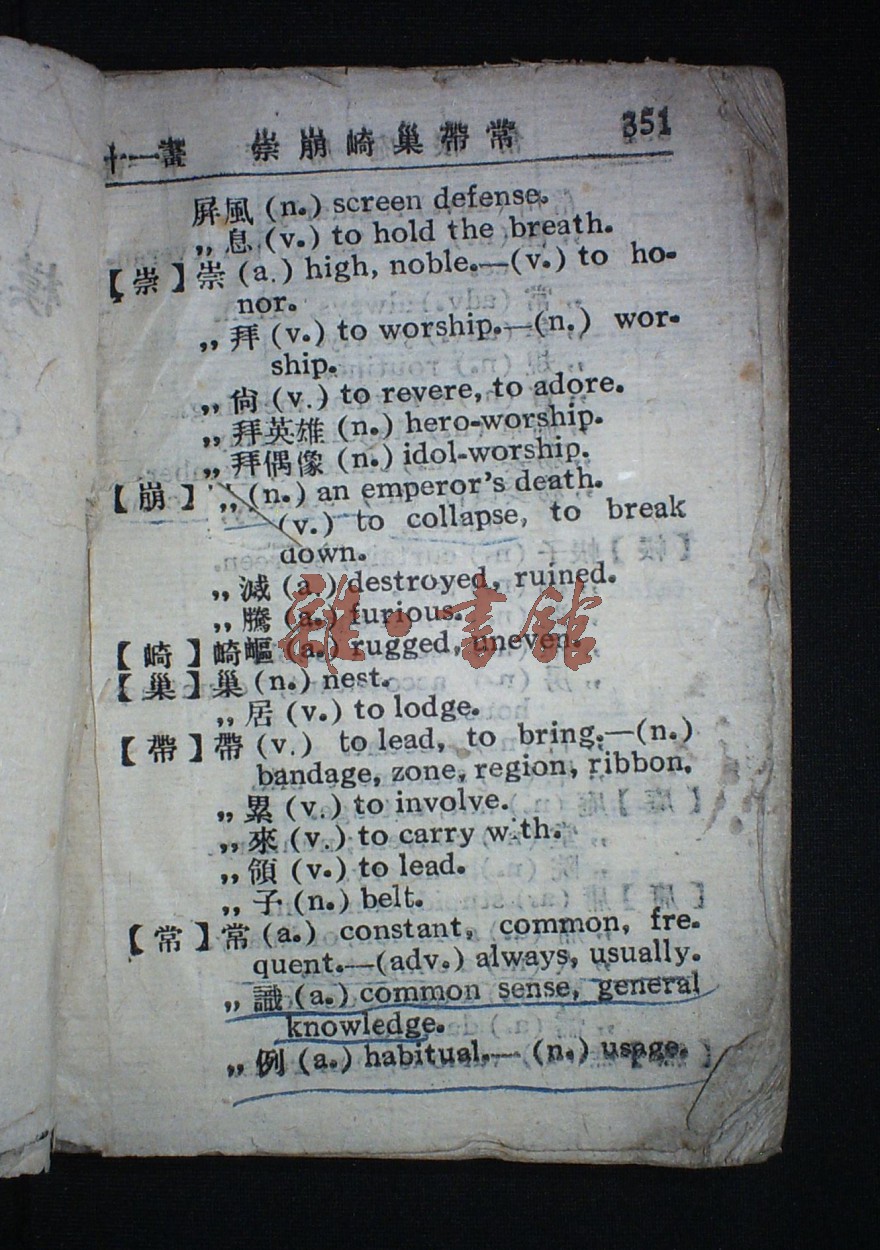 十一畫 崇崩崎巢帶常 351
屛風 (n.) screen defense.
„ 息 (v.) to hold the breath.
【崇】崇 (a.) high, noble.—(v.) to ho-
nor.
„ 拜 (v.) to worship.—(n.) wor-
ship.
„ 尙 (v.) to revere, to adore.
„ 拜英雄 (n.) hero-worship.
„ 拜偶像 (n.) idol-worship.
【崩】„ (n.) an emperor's death.
(v.) to collapse, to break
down.
„ 滅 (a.) destroyed, ruined.
„ 騰 (a.) furious.
【崎】崎嶇 (a.) rugged, uneven.
【巢】巢 (n.) nest.
„ 居 (v.) to lodge.
【帶】帶 (v.) to lead, to bring.—(n.)
bandage, zone, region, ribbon.
„ 累 (v.) to involve.
„ 來 (v.) to carry with.
„ 領 (v.) to lead.
„ 子 (n.) belt.
【常】常 (a.) constant, common, fre-
quent.—(adv.) always, usually.
„ 識 (a.) common sense, general
knowledge.
„ 例 (a.) habitual.— (n.) usage.
雜·書館